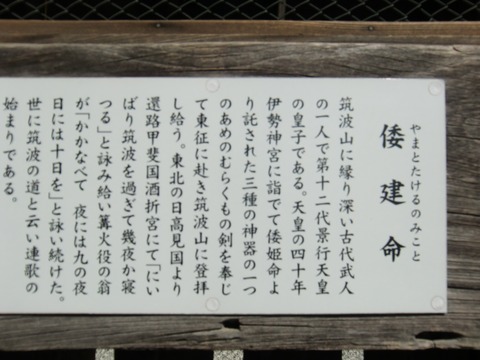 やまとたけるのみこと
倭建命
筑波山に縁り深い古代武人
の一人で第十二代景行天皇
の皇子である。天皇の四十年
伊勢神宮に詣でて倭姫命よ
り託された三種の神器の一つ
のあめのむらくもの剣を奉じ
て東征に赴き筑波山に登拝
し給う。東北の日高見国より
還路甲斐国酒折宮にて「にい
ばり筑波を過ぎて幾夜か寝
つる」と詠み給い篝火役の翁
が「かかなべて 夜には九の夜
日には十日を」と詠い続けた。
世に筑波の道と云い連歌の
始まりである。